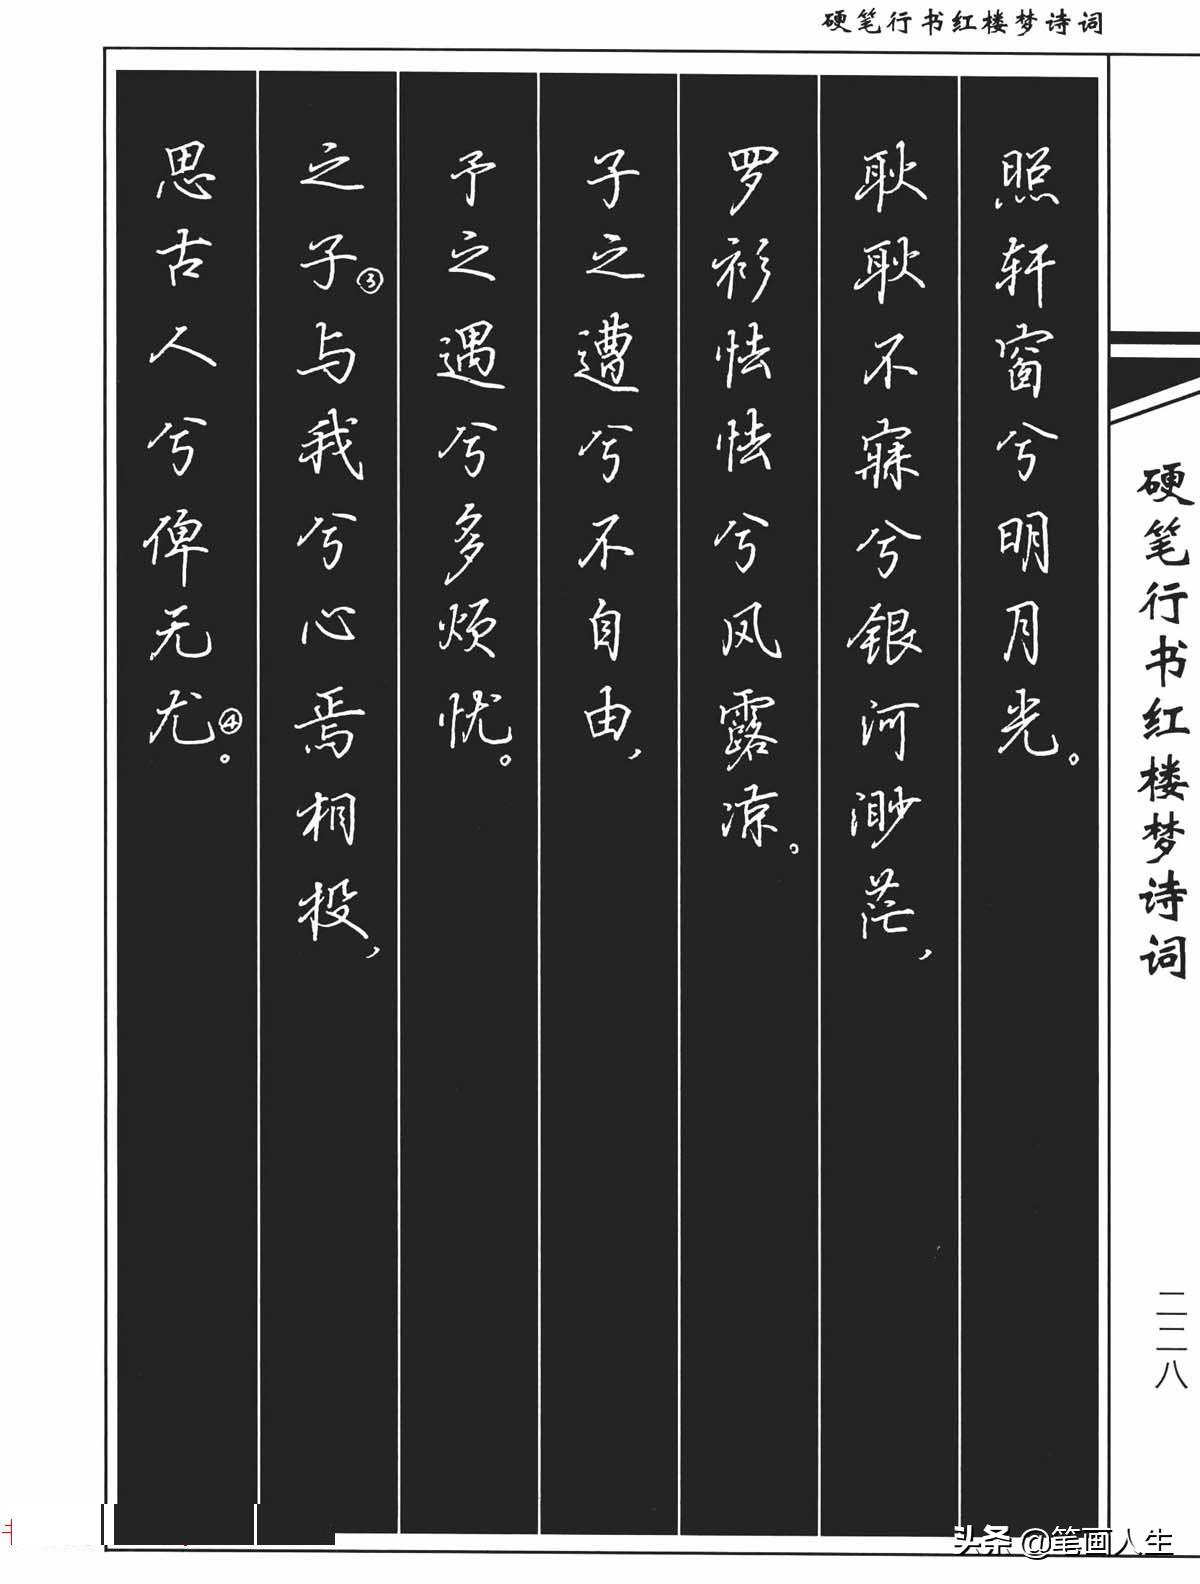 硬笔行书红楼梦诗词
照轩窗兮明月光。
耿耿不寐兮银河渺茫，
罗衫怯怯兮风露凉。
子之遭兮不自由，
予之遇兮多烦忧。
之子③与我兮心焉相投，
思古人兮俾无尤④。
硬笔行书红楼梦诗词
二二八
头条 @笔画人生